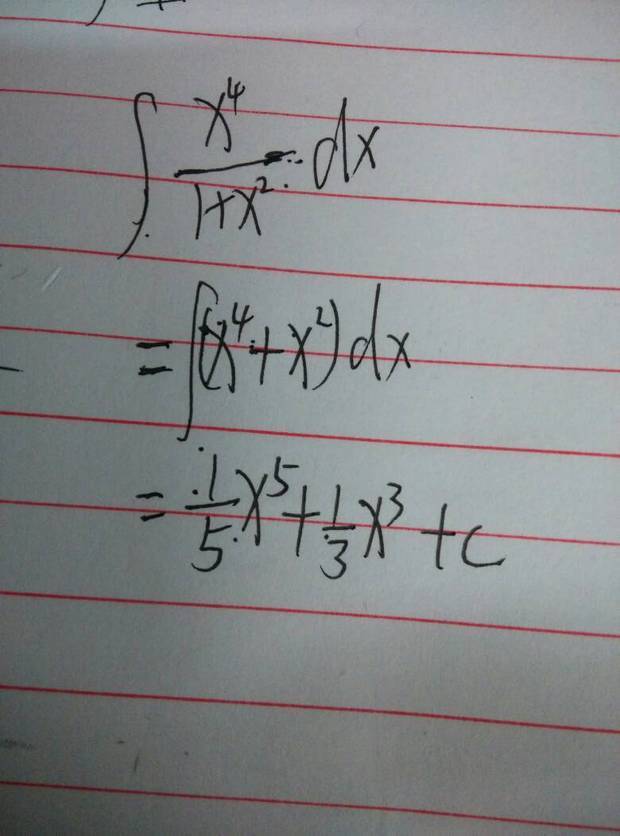 ∫ x⁴/(1+x²) dx
= ∫(x⁴+x²)dx
= 1/5 x⁵ + 1/3 x³ + c